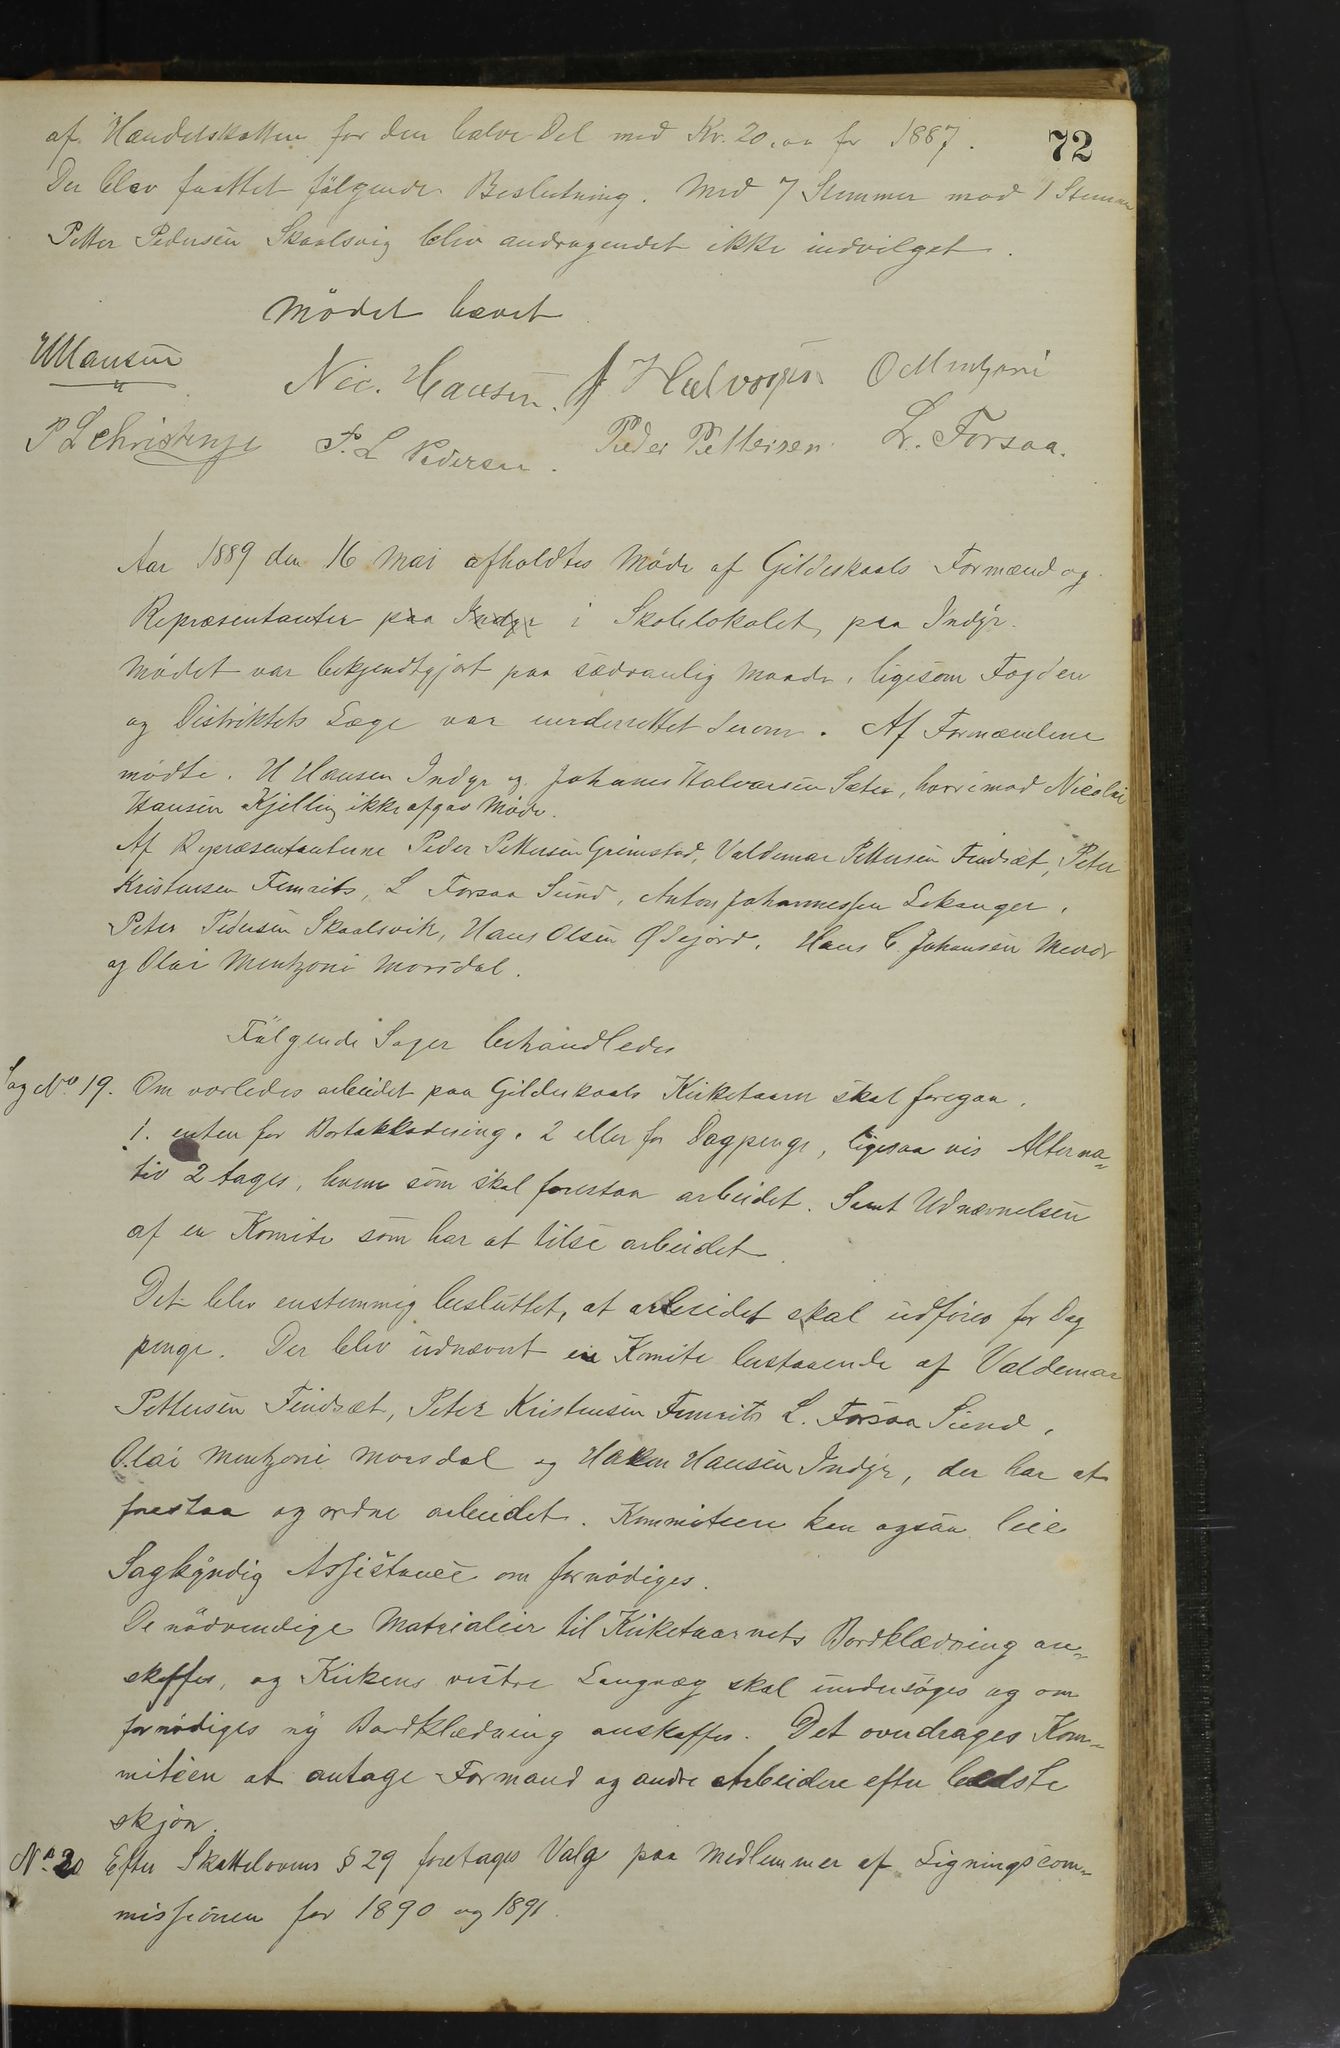 72
af Handelskatten for den halve Del med Kr. 20.00 for 1887.
Der blev fattet fölgende Beslutning. Med 7 Stemmer mod 1 Stemme
Petter Pedersen Skaalsvig blev andragendet ikke indvilget.
Mödet hævet
HHansen Nic. Hansen. J Halvorsen O Mentzoni
P L Christense P. L Pedersen. Peder Pettersen. L. Forsaa.
Aar 1889 den 16 Mai afholdtes Möde af Gildeskaals Formænd og
Repræsentanter paa Indyr i Skolelokalet, paa Indyr.
Mödet var bekjendtgjort paa sædvanlig Maade, ligesom Fogden
og Distriktets Læge var underrettet derom. Af Formændene
mödte. H Hansen Indyr og Johanes Halvorsen Sæter, hvorimod Nicolai
Hansen Kjelling ikke afgav Möde.
Af Repræsentanterne Peder Pettersen Grimstad, Valdemar Pettersen Findsæt, Peter
Kristensen Femris, L Forsaa Sund, Anton Johannessen Lekanger,
Peter Pedersen Skaalsvik, Hans Olsen Ödejord, Hans C. Johansen Mevor
og Olai Mentzoni Morsdal.
Fölgende Sager behandledes
Sag No. 19. Om vorledes arbeidet paa Gildeskaals Kirketaarn skal foregaa.
1. enten for Bortakkodering. 2 eller for Dagpenge, ligesaa vis Alterna-
tiv 2 tages, hvem som skal forestaa arbeidet. Samt Udnævnelsen
af en Komite som har at tilse arbeidet.
Det blev enstemmig besluttet, at arbeidet skal udföres for Dag
penge. Der blev udnævnt en Komite bestaaende af Valdemar
Pettersen Findsæt, Peter Kristensen Femris L. Forsaa Sund,
Olai Mentzoni Morsdal og Haken Hansen Indyr, der har at
forestaa og ordne arbeidet. Kommiteen kan ogsaa leie
Sagkyndig Assistance om fornödiges.
De nödvendige Matrialier til Kirketaarnets Bordklædning an-
skaffes, og Kirkens vestre Langvæg skal undersöges og om
fornödiges ny Bordklædning anskaffes. Det overdrages Kom-
miteen at antage Formand og andre Arbeidere efter bedste
skjön.
No. 20 Efter Skattelovens § 29 foretages Valg paa Medlemmer af Ligningscom-
missionen for 1890 og 1891.